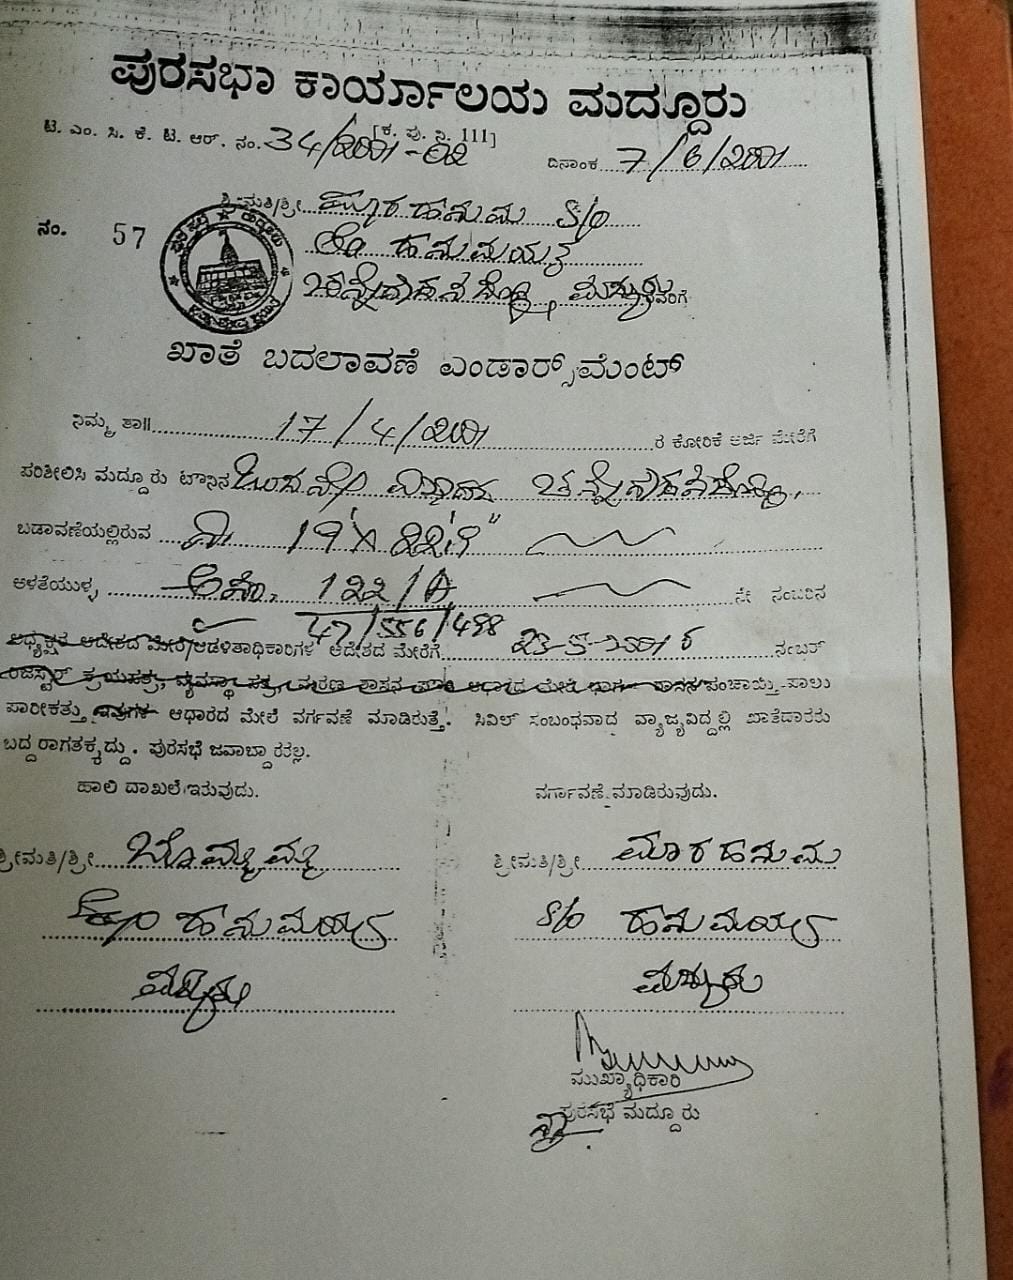 ಪುರಸಭಾ ಕಾರ್ಯಾಲಯ ಮದ್ದೂರು
[ಕ. ಪು. ನಿ. 111]
ಟಿ. ಎಂ. ಸಿ. ಕೆ. ಟಿ. ಆರ್. ನಂ. 34/2001-02 ದಿನಾಂಕ 7/6/2001
ಶ್ರೀಮತಿ/ಶ್ರೀ ಮಾರ ಹನುಮ S/o
ನಂ. 57
ಹನುಮಯ್ಯ
ರವರಿಗೆ
ಖಾತೆ ಬದಲಾವಣೆ ಎಂಡಾರ್ಸ್‌ಮೆಂಟ್
ನಿಮ್ಮ ತಾ॥ 17/4/2001 ರ ಕೋರಿಕೆ ಅರ್ಜಿ ಮೇರೆಗೆ
ಪರಿಶೀಲಿಸಿ ಮದ್ದೂರು ಟೌನಿನ
ಬಡಾವಣೆಯಲ್ಲಿರುವ
ಅಳತೆಯುಳ್ಳ ಅಸೆ. 122/A ನೇ ನಂಬರಿನ
47/556/498
ಅಧ್ಯಕ್ಷರ ಆದೇಶದ ಮೇರೆ/ಆಡಳಿತಾಧಿಕಾರಿಗಳ ಆದೇಶದ ಮೇರೆಗೆ 23-5-2001 ರ ನಂಬರ್
ರಿಜಿಸ್ಟರ್ ಕ್ರಯಪತ್ರ, ವ್ಯವಸ್ಥಾ ಪತ್ರ, ಮರಣ ಶಾಸನ ಆಧಾರದ ಮೇಲೆ ಪಂಚಾಯ್ತಿ-ಪಾಲು
ಪಾರೀಕತ್ತು ಇವುಗಳ ಆಧಾರದ ಮೇಲೆ ವರ್ಗವಣೆ ಮಾಡಿರುತ್ತೆ. ಸಿವಿಲ್ ಸಂಬಂಧವಾದ ವ್ಯಾಜ್ಯವಿದ್ದಲ್ಲಿ ಖಾತೆದಾರರು
ಬದ್ದರಾಗತಕ್ಕದ್ದು. ಪುರಸಭೆ ಜವಾಬ್ದಾರರಲ್ಲ.
ಹಾಲಿ ದಾಖಲೆ ಇರುವುದು. ವರ್ಗಾವಣೆ ಮಾಡಿರುವುದು.
ಶ್ರೀಮತಿ/ಶ್ರೀ ಬೊಮ್ಮಮ್ಮ ಶ್ರೀಮತಿ/ಶ್ರೀ ಮಾರಹನುಮ
ಹನುಮಯ್ಯ S/o ಹನುಮಯ್ಯ
ಮದ್ದೂರು ಮದ್ದೂರು
ಮುಖ್ಯಾಧಿಕಾರಿ
ಪುರಸಭೆ ಮದ್ದೂರು